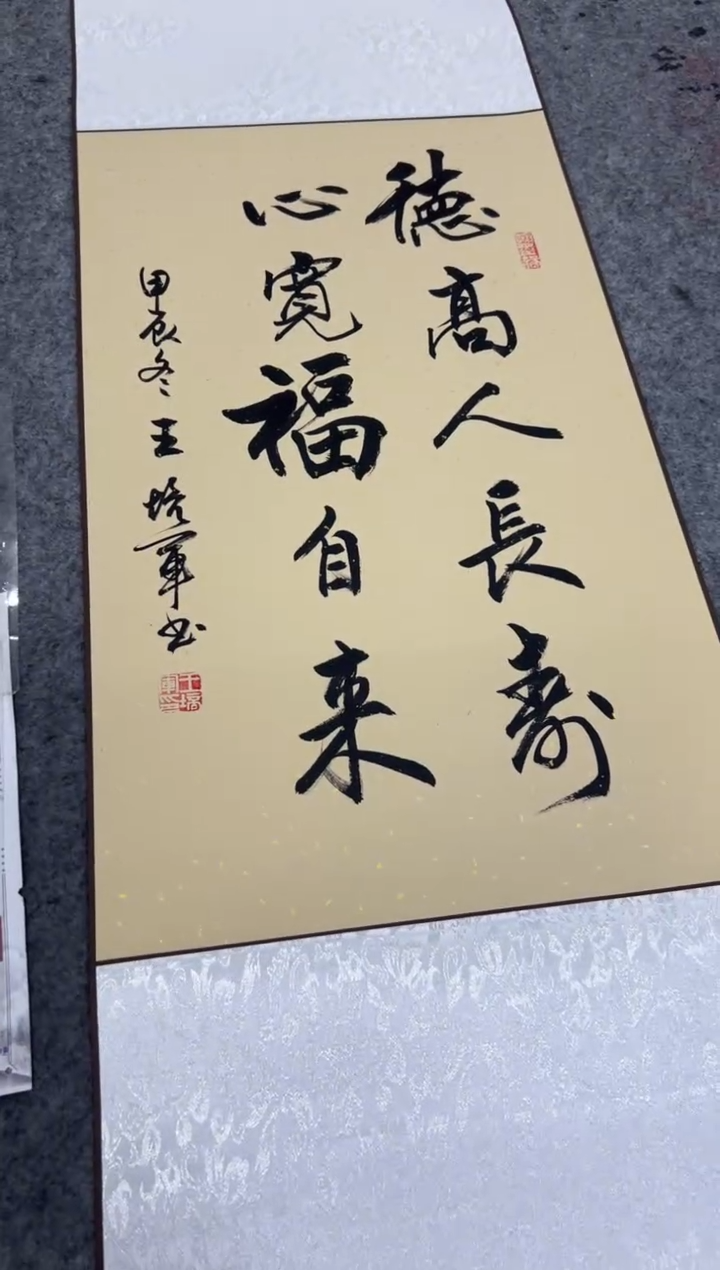 德高人長壽
心寬福自来
甲辰冬 王培軍书
王培軍印